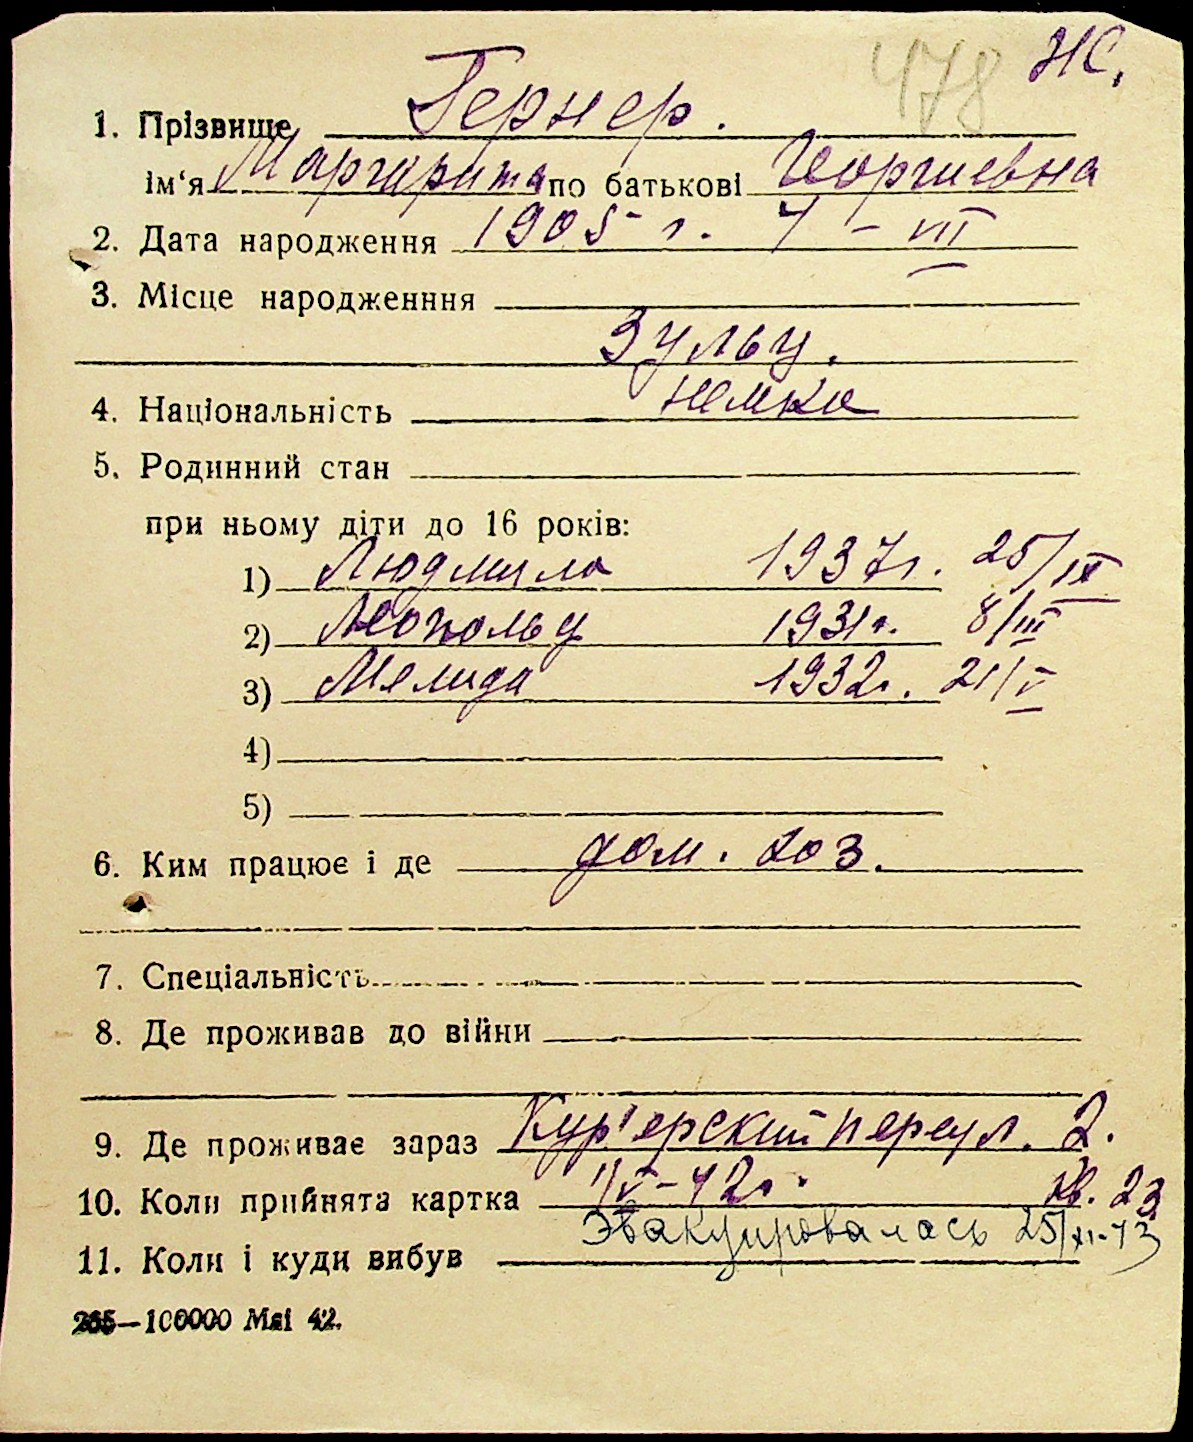 478 НС.
1. Прізвище Гернер.
ім‘я Маргарита по батькові Георгиевна
2. Дата народження 1905 г. 7 – VIII
3. Місце народженння
Зульц.
4. Національність немка
5. Родинний стан
при ньому діти до 16 років:
1) Людмила 1937г. 25/IX
2) Леопольд 1931г. 8/III
3) Мелида 1932г. 21/V
4)
5)
6. Ким працює і де дом. хоз.
7. Спеціальність
8. Де проживав до війни
9. Де проживає зараз Кур'ерский переул. 2.
10. Коли прийнята картка 1/V-42г. кв. 23
11. Коли і куди вибув Эвакуировалась 25/XI-43
265—100000 Маі 42.